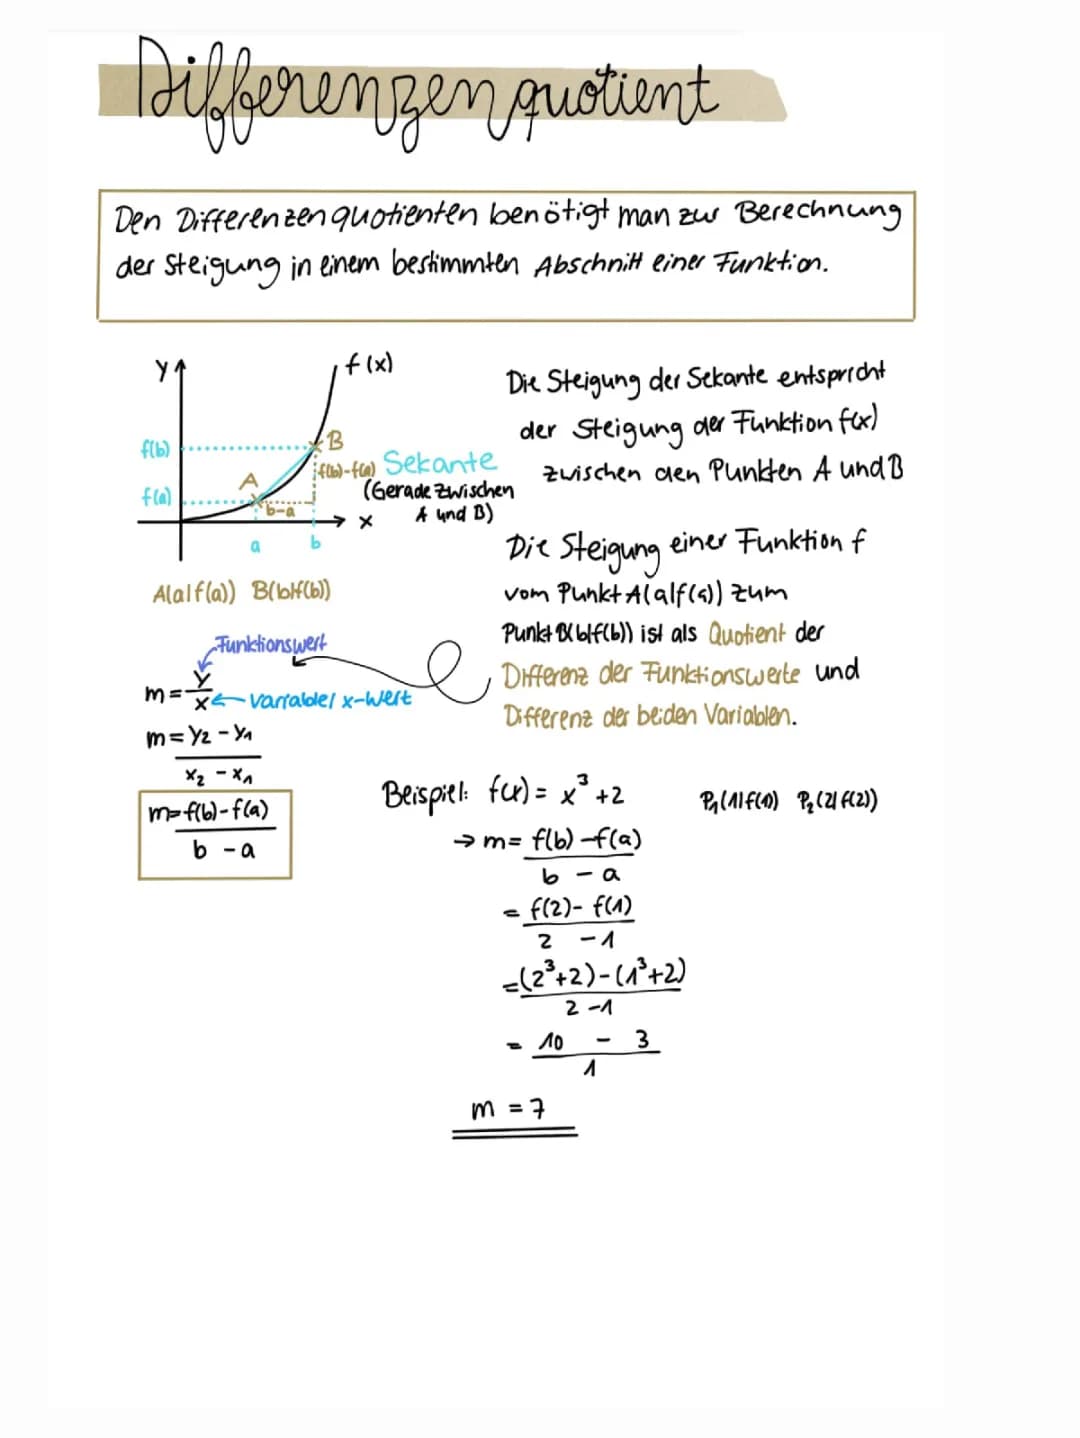 Differenzenquotient
Den Differenzenquotienten benötigt man zur Berechnung
der Steigung in einem bestimmten Abschnitt einer Funktion.
y
f(x)
f(b)
B
f(b)-f(a)
Sekante
(Gerade zwischen
A und B)
A
f(a)
b-a
x
a
b
A(a|f(a)) B(b|f(b))
Die Steigung der Sekante entspricht
der Steigung der Funktion f(x)
zwischen den Punkten A und B
Die Steigung einer Funktion f
vom Punkt A(a|f(a)) zum
Punkt B(b|f(b)) ist als Quotient der
Differenz der Funktionswerte und
Differenz der beiden Variablen.
Funktionswert
m = y
x ← variable/ x-Wert
m = y₂ - y₁
x₂ - x₁
m = f(b)-f(a)
b - a
Beispiel: f(x) = x³ +2
P₁(1|f(1)) P₂(2|f(2))
→ m = f(b) - f(a)
b - a
= f(2) - f(1)
2 - 1
= (2³+2)-(1³+2)
2 -1
= 10 - 3
1
m = 7